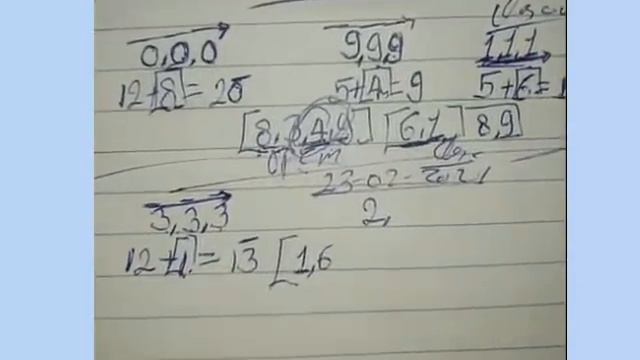 0,0,0 9,9,9 1,1,1
12+8=20 5+4=9 5+6=1
[8,3,4,9] [6,1] 8,9
23-02-2021
3,3,3 2,
12+1=13 [1,6